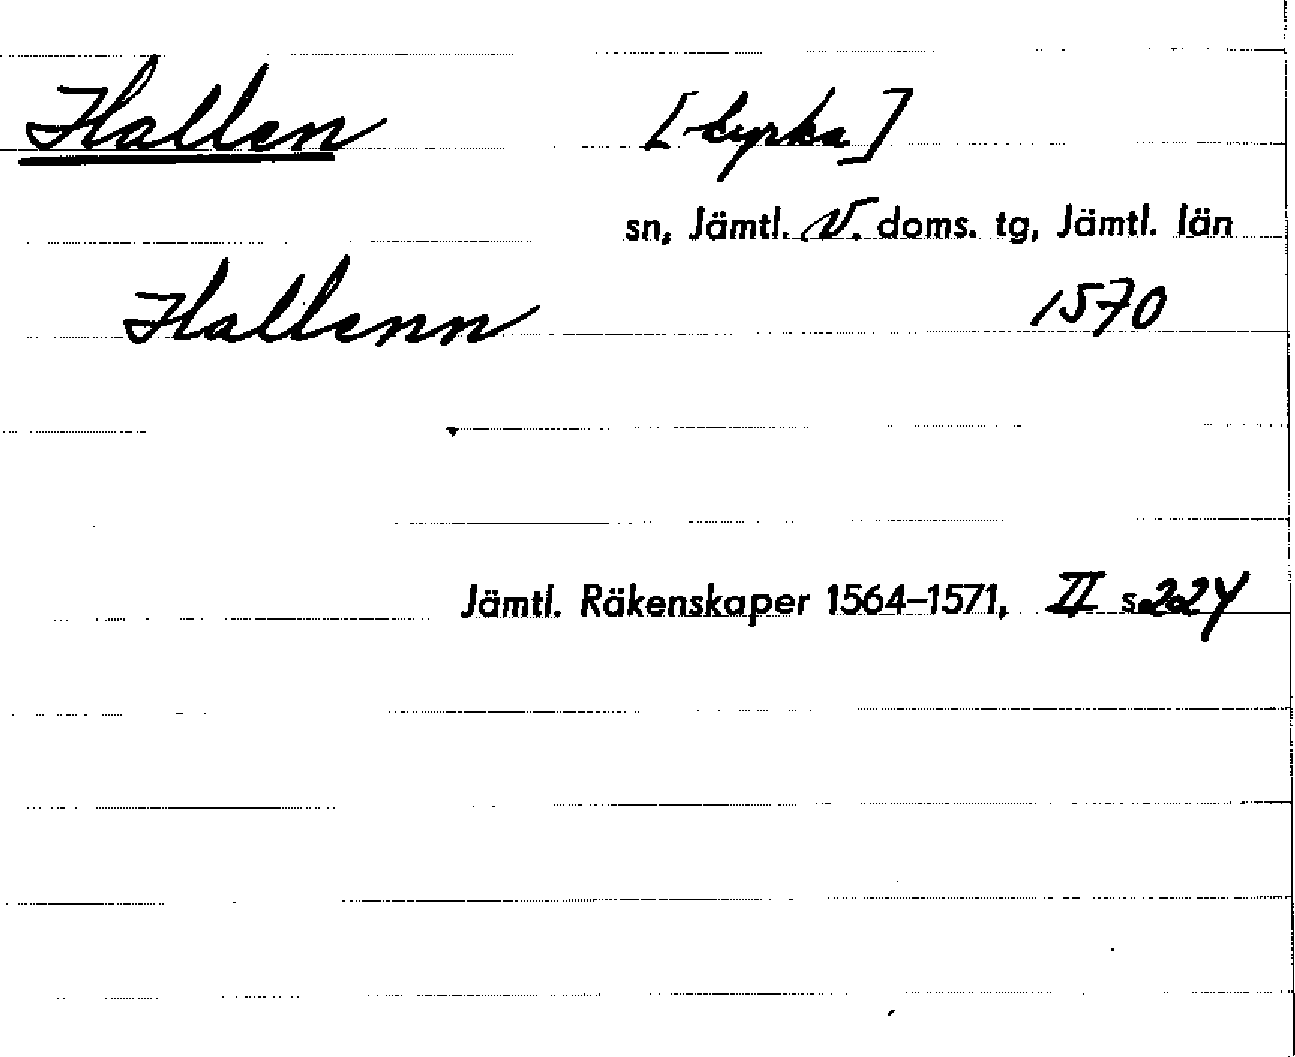 Hallen [kyrka]
sn, Jämtl. V. doms. tg, Jämtl. län
Hallenn 1570
Jämtl. Räkenskaper 1564–1571, II s. 224